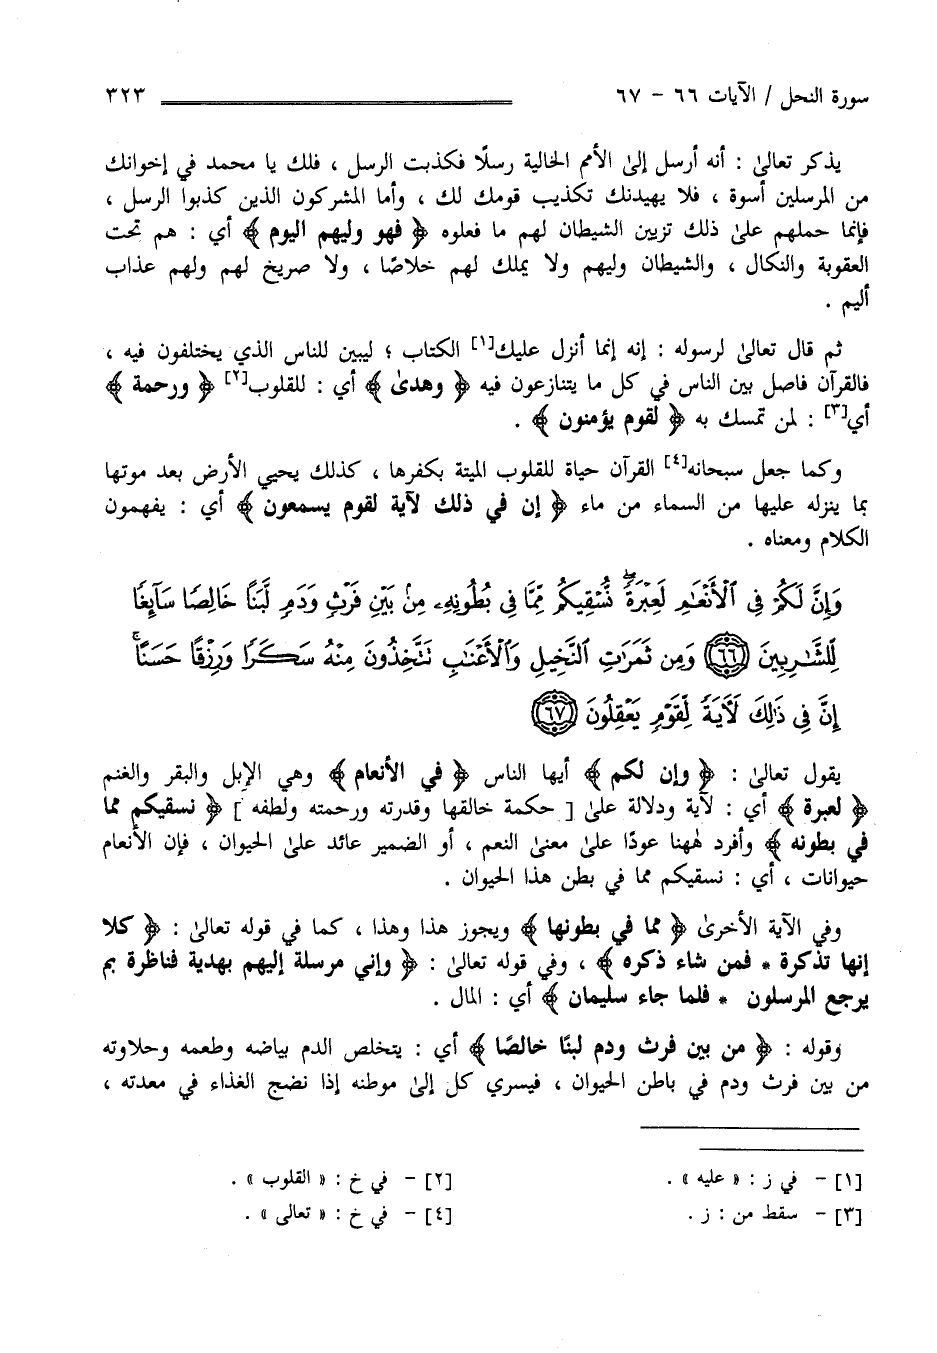 سورة النحل / الآيات ٦٦ - ٦٧ ٣٢٣
يذكر تعالىٰ : أنه أرسل إلىٰ الأمم الخالية رسلًا فكذبت الرسل ، فلك يا محمد في إخوانك
من المرسلين أسوة ، فلا يهيدنك تكذيب قومك لك ، وأما المشركون الذين كذبوا الرسل ،
فإنما حملهم علىٰ ذلك تزيين الشيطان لهم ما فعلوه ﴿ فهو وليهم اليوم ﴾ أي : هم تحت
العقوبة والنكال ، والشيطان وليهم ولا يملك لهم خلاصًا ، ولا صريخ لهم ولهم عذاب
أليم .
ثم قال تعالىٰ لرسوله : إنه إنما أنزل عليك[١] الكتاب ؛ ليبين للناس الذي يختلفون فيه ،
فالقرآن فاصل بين الناس في كل ما يتنازعون فيه ﴿ وهدىٰ ﴾ أي : للقلوب[٢] ﴿ ورحمة ﴾
أي[٣] : لمن تمسك به ﴿ لقوم يؤمنون ﴾ .
وكما جعل سبحانه[٤] القرآن حياة للقلوب الميتة بكفرها ، كذلك يحيي الأرض بعد موتها
بما ينزله عليها من السماء من ماء ﴿ إن في ذلك لآية لقوم يسمعون ﴾ أي : يفهمون
الكلام ومعناه .
وَإِنَّ لَكُمْ فِى ٱلْأَنْعَٰمِ لَعِبْرَةً ۖ نُّسْقِيكُم مِّمَّا فِى بُطُونِهِۦ مِنۢ بَيْنِ فَرْثٍ وَدَمٍ لَّبَنًا خَالِصًا سَآئِغًا
لِّلشَّٰرِبِينَ ﴿٦٦﴾ وَمِن ثَمَرَٰتِ ٱلنَّخِيلِ وَٱلْأَعْنَٰبِ تَتَّخِذُونَ مِنْهُ سَكَرًا وَرِزْقًا حَسَنًا ۗ
إِنَّ فِى ذَٰلِكَ لَءَايَةً لِّقَوْمٍ يَعْقِلُونَ ﴿٦٧﴾
يقول تعالىٰ : ﴿ وإن لكم ﴾ أيها الناس ﴿ في الأنعام ﴾ وهي الإبل والبقر والغنم
﴿ لعبرة ﴾ أي : لآية ودلالة علىٰ [ حكمة خالقها وقدرته ورحمته ولطفه ] ﴿ نسقيكم مما
في بطونه ﴾ وأفرد هٰهنا عودًا علىٰ معنىٰ النعم ، أو الضمير عائد علىٰ الحيوان ، فإن الأنعام
حيوانات ، أي : نسقيكم مما في بطن هذا الحيوان .
وفي الآية الأخرىٰ ﴿ مما في بطونها ﴾ ويجوز هذا وهذا ، كما في قوله تعالىٰ : ﴿ كلا
إنها تذكرة * فمن شاء ذكره ﴾ ، وفي قوله تعالىٰ : ﴿ وإني مرسلة إليهم بهدية فناظرة بم
يرجع المرسلون * فلما جاء سليمان ﴾ أي : المال .
وقوله : ﴿ من بين فرث ودم لبنًا خالصًا ﴾ أي : يتخلص الدم بياضه وطعمه وحلاوته
من بين فرث ودم في باطن الحيوان ، فيسري كل إلىٰ موطنه إذا نضج الغذاء في معدته ،
[١] - في ز : « عليه » . [٢] - في خ : « القلوب » .
[٣] - سقط من : ز . [٤] - في خ : « تعالى » .